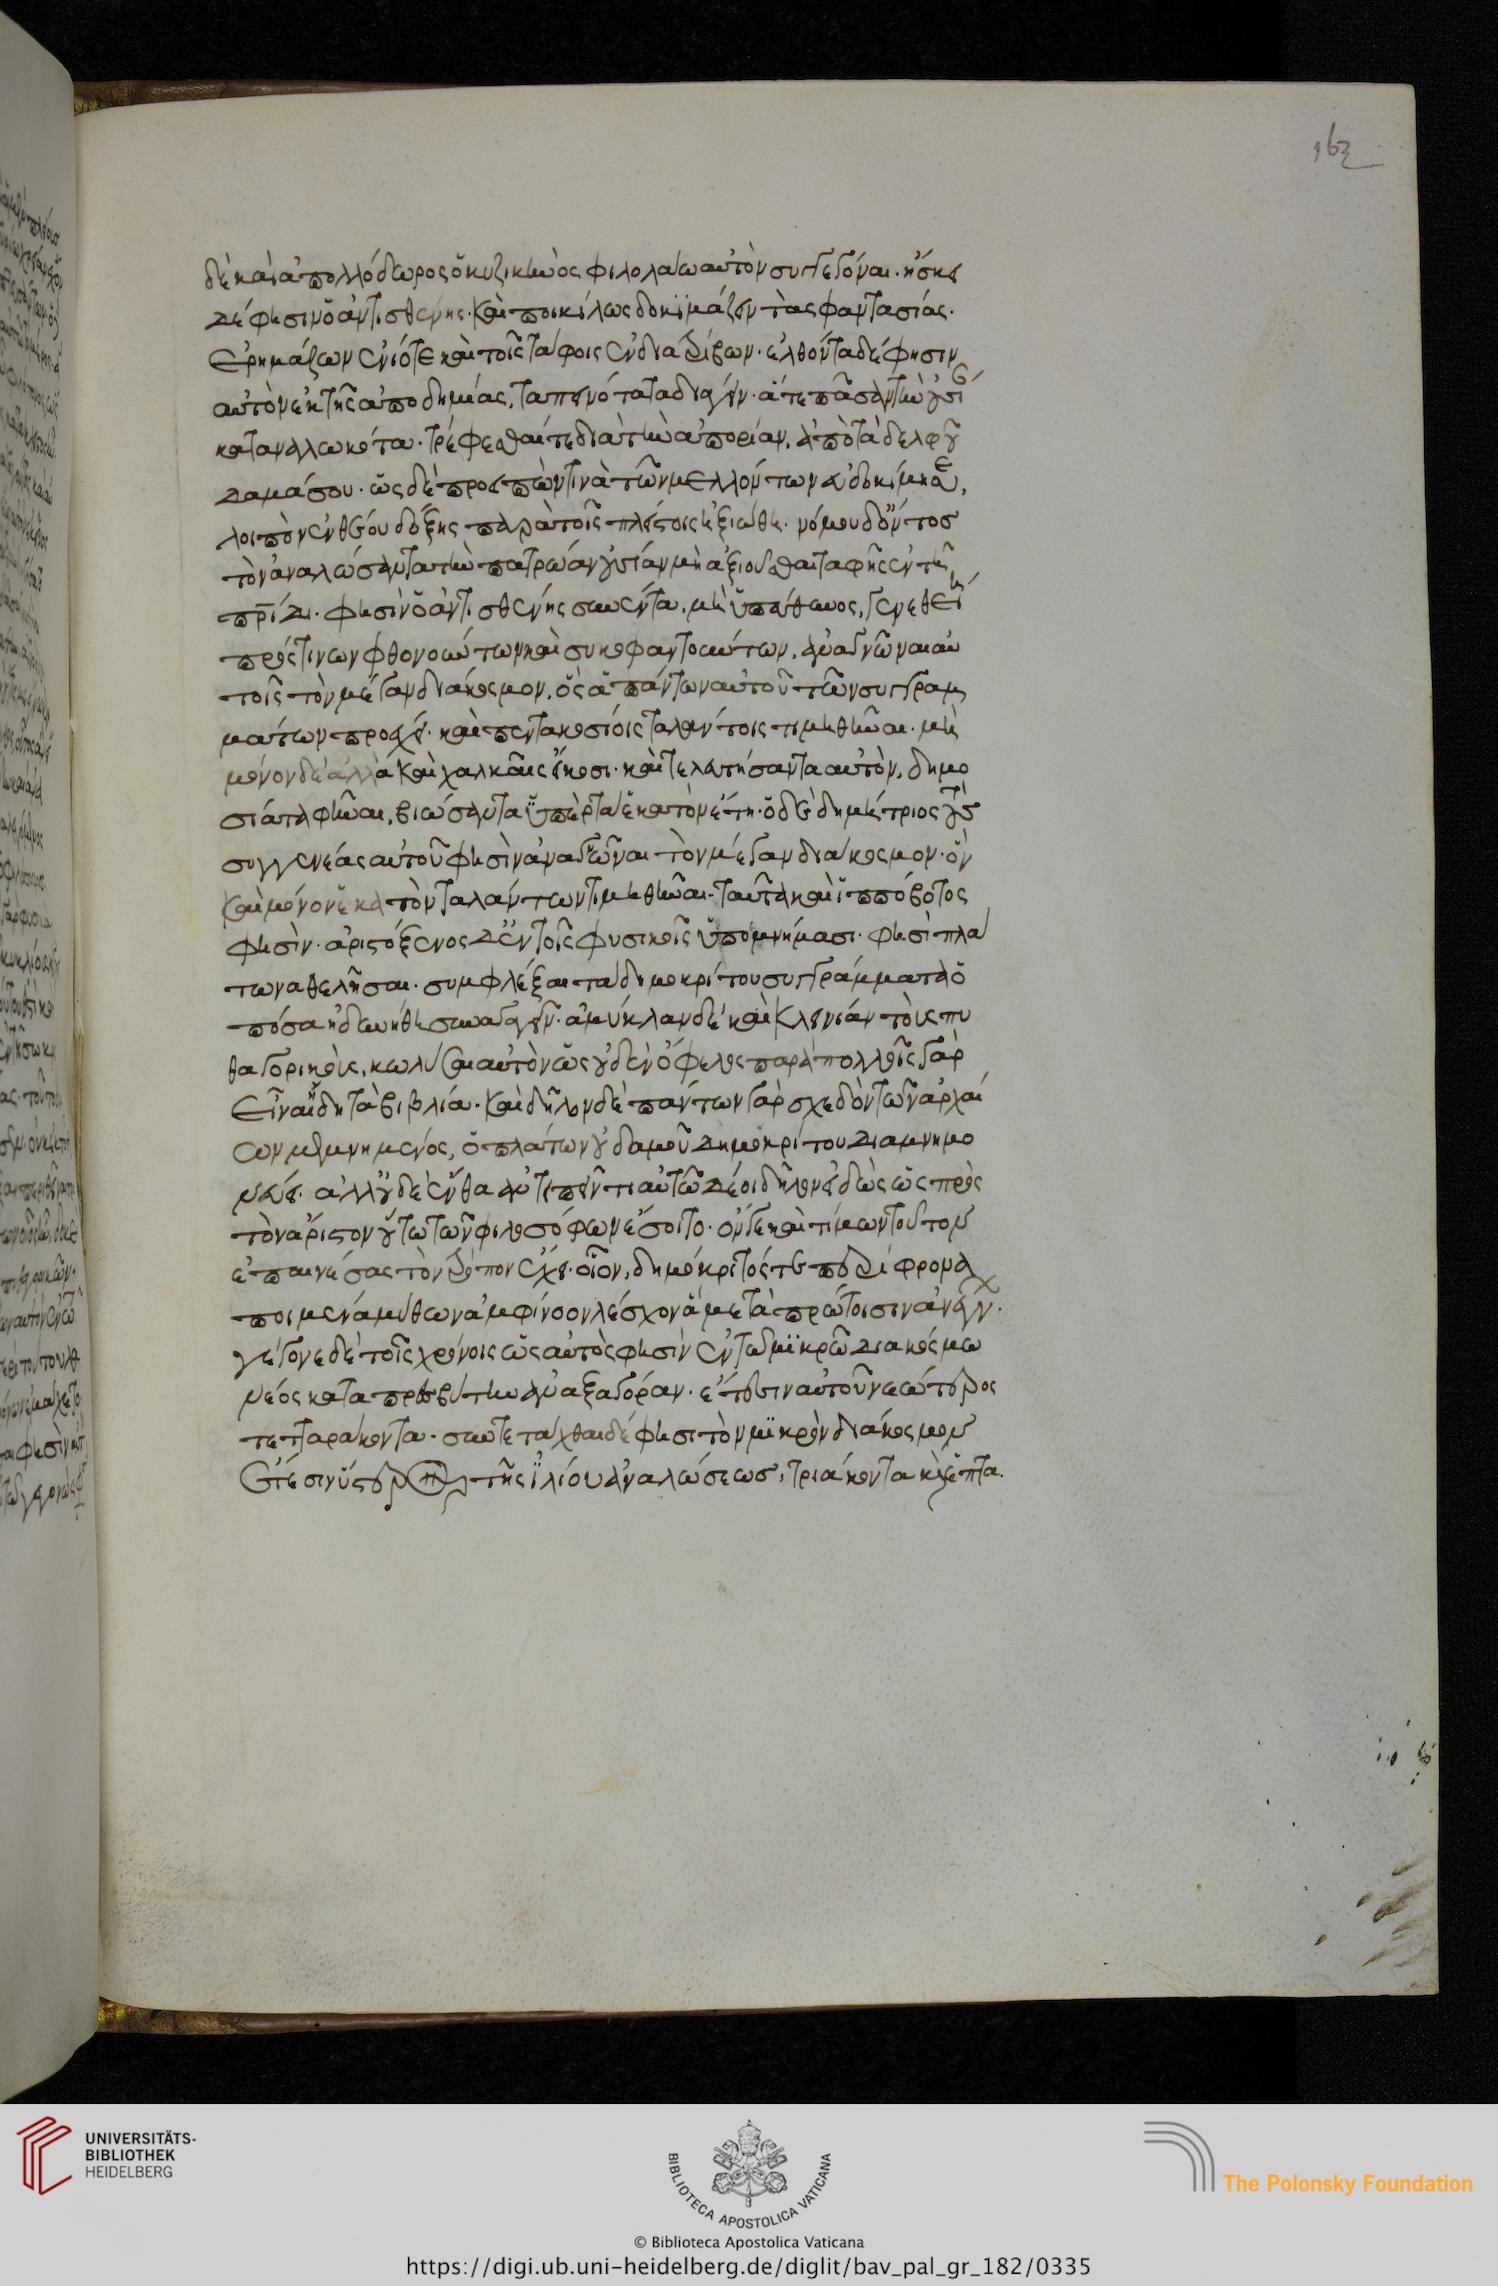 163
δὲ καὶ ἀπολλόδωρος ὁ κυζικηνὸς φιλολάω αὐτὸν συγγεγόναι. ἤσκει
δέ φησιν ὁ ἀντισθένης. καὶ ποικίλως δοκϊμάζειν τὰς φαντασίας.
ἐρημάζων ἐνίοτε καὶ τοῖς τάφοις ἐνδιατρίβων. ἐλθόντα δέ φησιν
αὐτὸν ἐκ τῆς ἀποδημίας, ταπεινότατα διάγειν. ἅτε πᾶσαν τὴν οὐσί
καταναλωκότα. τρέφεσθαί τε διὰ τὴν ἀπορίαν, ἀπὸ τἀδελφοῦ
δαμάσου. ὡς δὲ προειπὼν τινὰ τῶν μελλόντων εὐδοκίμησε,
λοιπὸν ἐνθέου δόξης παρὰ τοῖς πλείστοις ἠξιώθη. νόμου δ' ὄντοσ
τὸν ἀναλώσαντα τὴν πατρώαν οὐσίαν μὴ ἀξιοῦσθαι ταφῆς ἐν τῆ
πρίδι. φησὶν ὁ ἀντισθένης συνέντα, μὴ ὑπεύθυνος, γενηθείη
πρός τινων φθονούντων καὶ συκοφαντούντων, ἀναγνῶναι αὐ
τοῖς τὸν μέγαν διάκοσμον, ὃς ἁπάντων αὐτοῦ τῶν συγγραμ
μάτων προέχει. καὶ πεντακοσίοις ταλάντοις τιμηθῆναι. μὴ
μόνον δὲ ἀλλὰ καὶ χαλκαῖς εἴκοσι. καὶ τελευτήσαντα αὐτὸν, δημο
σία ταφῆναι, βιώσαντα ὑπὲρ τὰ ἑκατὸν ἔτη. ὁ δὲ δημήτριος τοὺς
συγγενέας αὐτοῦ φησὶν ἀναγνῶναι τὸν μέγαν διάκοσμον. ὃν
καὶ μόνον ἑκατὸν ταλάντων τιμηθῆναι. ταῦτα καὶ ἱππόβοτος
φησὶν. ἀριστόξενος δ' ἐν τοῖς φυσικοῖς ὑπομνήμασι. φησὶ πλά
τωνα θελῆσαι. συμφλέξαι τὰ δημοκρίτου συγγράμματα ὁ
πόσα ἠδυνήθη συναγαγεῖν. ἀμύκλαν δὲ καὶ κλεινίαν τοὺς πυ
θαγορικοὺς, κωλῦσαι αὐτὸν ὡς οὐδὲν ὄφελος παρὰ πολλοῖς γὰρ
εἶναι ἤδη τὰ βιβλία. καὶ δῆλον δὲ πάντων γὰρ σχεδὸν τῶν ἀρχαί
ων μεμνημένος, ὁ πλάτων οὐδαμοῦ δημοκρίτου διαμνημο
νεύει. ἀλλ' οὐδὲ ἔνθα ἀντειπεῖν τι αὐτῶ δέοι δῆλον εἰδὼς ὡς πρὸς
τὸν ἄριστον οὕτω τῶν φιλοσόφων ἔσοιτο. ὅν γε καὶ τίμων τοῦτον
ἐπαινέσας τὸν τρόπον ἔχει. οἷον, δημόκριτός τε περίφρονα
ποιμένα μύθων ἀμφίνοον λέσχον ἃ μετὰ πρώτοισιν ἀνέγν.
γέγονε δὲ τοῖς χρόνοις ὡς αὐτὸς φησὶν ἐν τῶ μϊκρῶ διακόσμω
νέος κατὰ πρεσβύτην ἀναξαγόραν. ἔτεσιν αὐτοῦ νεώτερος
τετταράκοντα. συντετάχθαι δέ φησι τὸν μϊκρὸν διάκοσμον
ἔτεσιν ὕστερον τῆς ἰλίου ἀναλώσεωσ, τριάκοντα κ̀ ἑπτα.
UNIVERSITÄTS-
BIBLIOTHEK
HEIDELBERG
BIBLIOTECA APOSTOLICA VATICANA
The Polonsky Foundation
© Biblioteca Apostolica Vaticana
https://digi.ub.uni-heidelberg.de/diglit/bav_pal_gr_182/0335